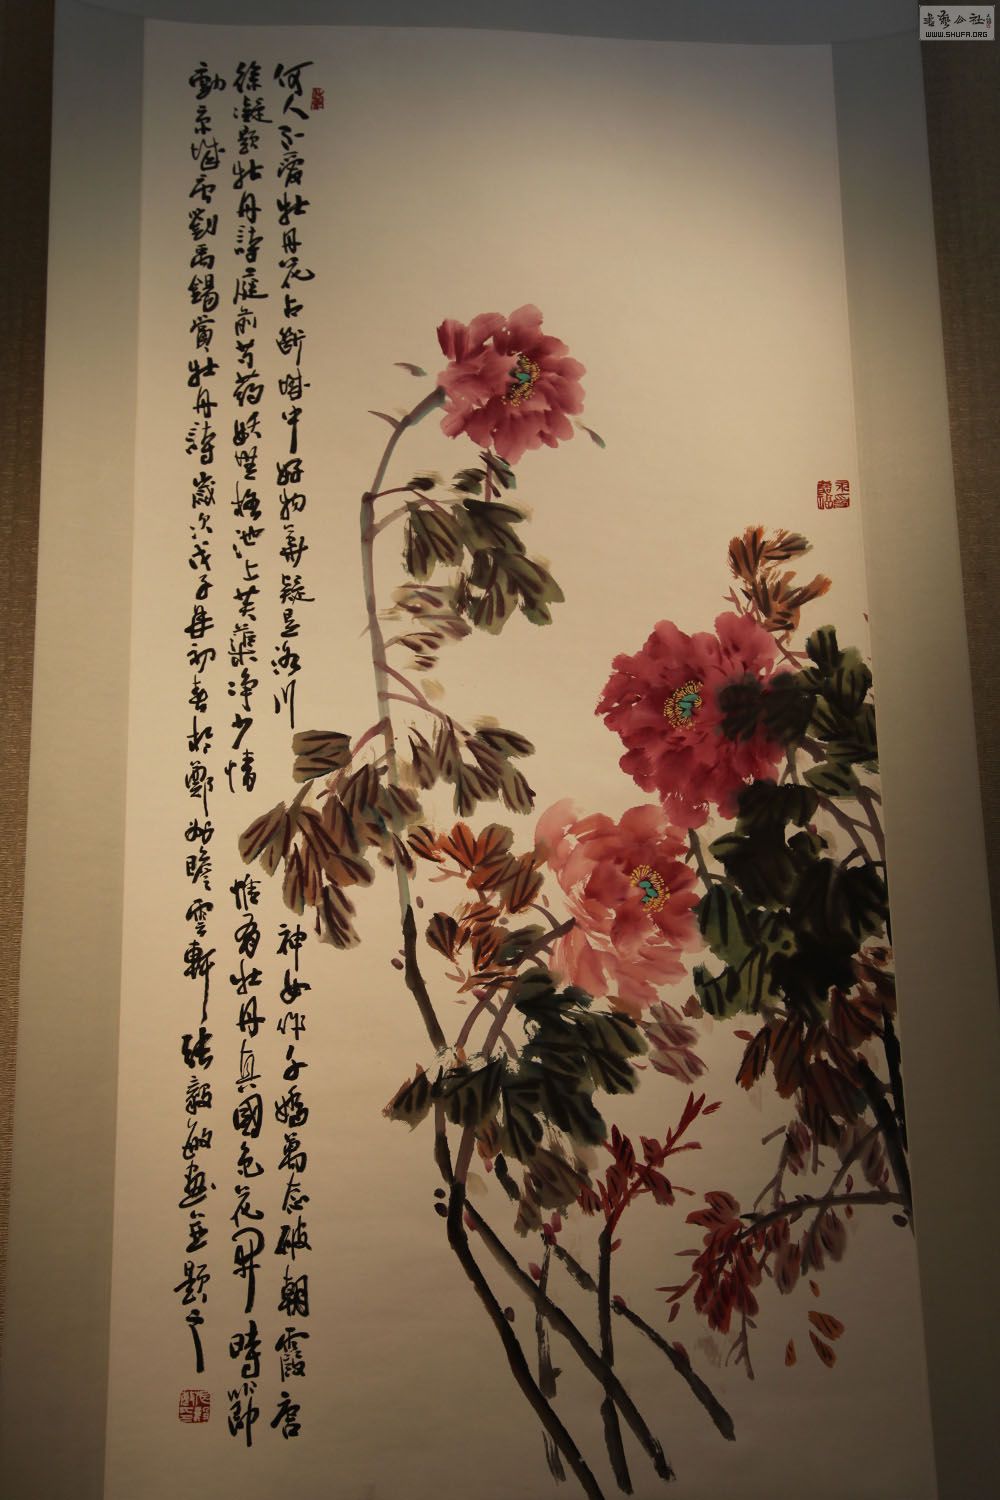 何人不爱牡丹花占断城中好物華疑是洛川神女作千嬌萬态破朝霞唐
徐凝题牡丹詩庭前芍药妖無格池上芙蕖净少情惟有牡丹真國色花開時節
動京城唐劉禹錫賞牡丹詩歲次戊子年初春於鄭州瞻雲軒張毅敏畫并题之
書藝公社
WWW.SHUFA.ORG